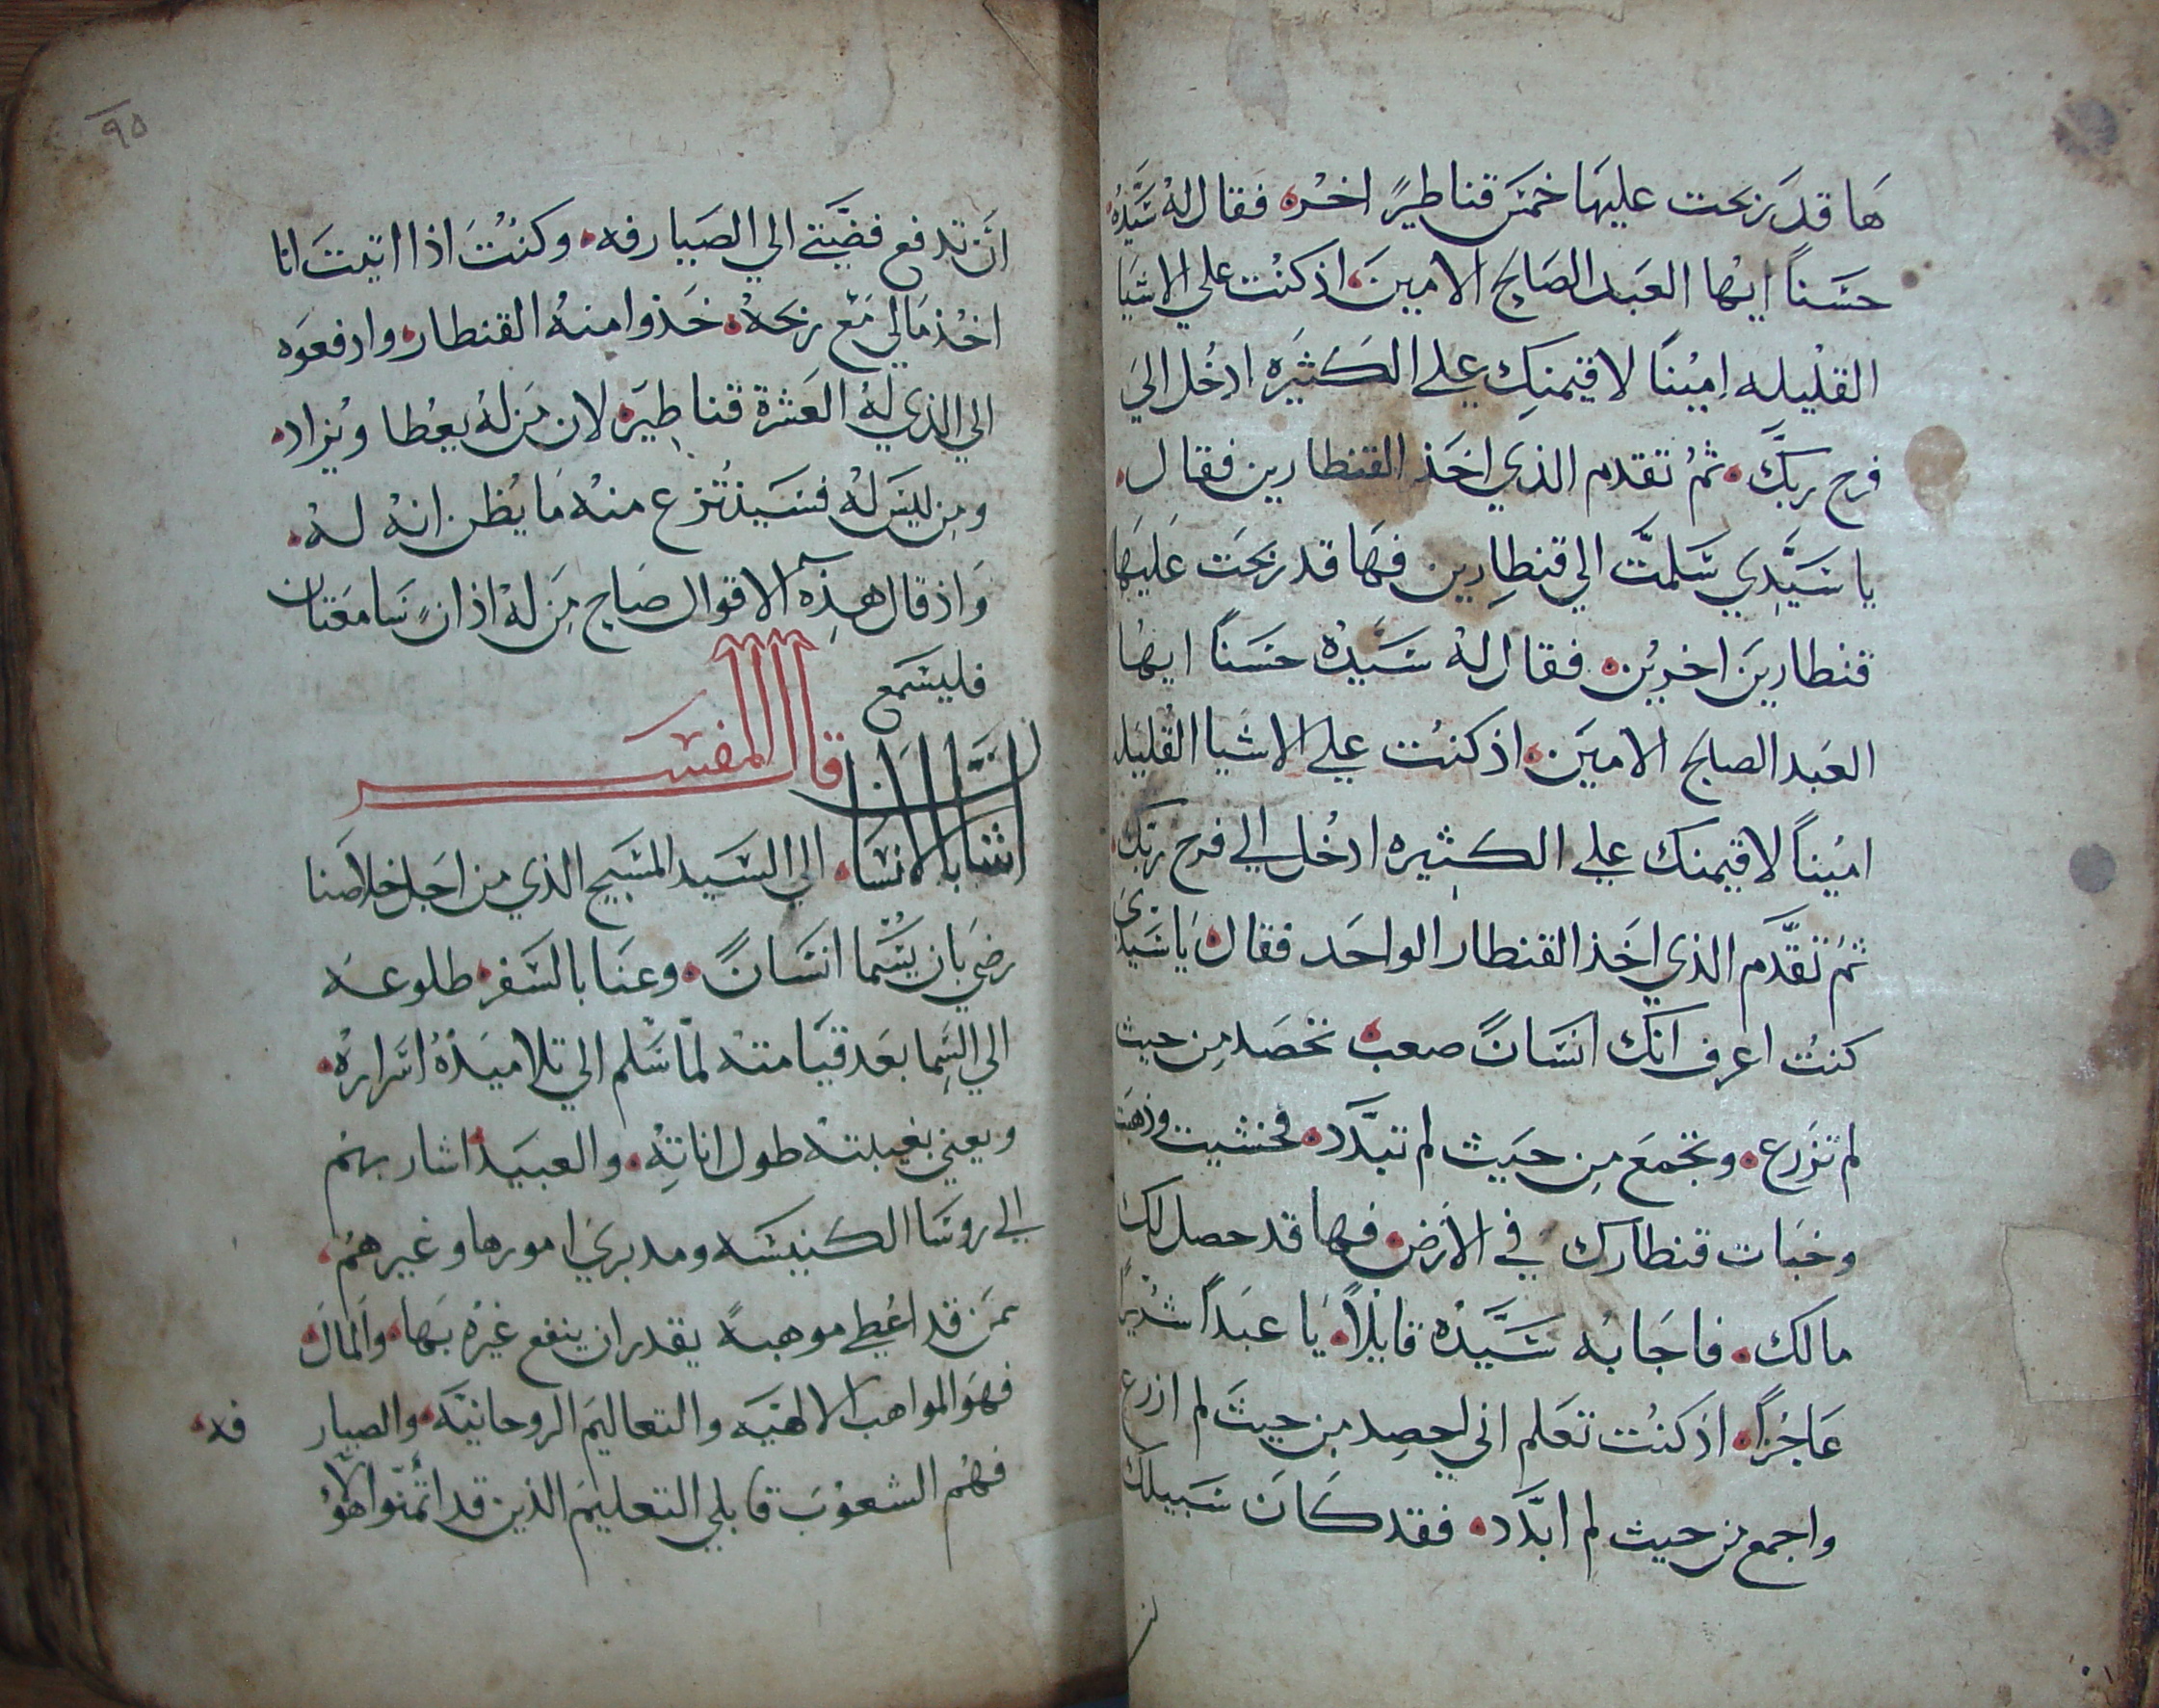 ها قد ربحت عليها خمس قناطير اخره فقال له سيده
حسناً ايها العبد الصالح الامين اذ كنت علي الاشيا
القليله اميناً لاقيمنك علي الكثيره ادخل الي
فرح ربك ثم تقدم الذي اخذ القنطارين فقال
يا سيدي سلمت الي قنطارين فها قد ربحت عليها
قنطارين اخرين فقال له سيده حسناً ايها
العبد الصالح الامين اذ كنت علي الاشيا القليله
اميناً لاقيمنك علي الكثيره ادخل الي فرح ربك
ثم تقدم الذي اخذ القنطار الواحد فقال يا سيدي
كنت اعرف انك انسانً صعب تحصد من حيث
لم تزرع وتجمع من حيث لم تبدد فخشيت وذهبت
وخبات قنطارك في الارض فها قد حصل لك
مالك فاجابه سيده قايلاً يا عبداً شريراً
عاجزاً اذ كنت تعلم اني احصد من حيث لم ازرع
واجمع من حيث لم ابدد فقد كان سبيلك
٩٥
ان تدفع فضتي الي الصيارفه وكنت اذا اتيت انا
اخذ مالي مع ربحه خذوا منه القنطار وادفعوه
الي الذي له العشرة قناطير لان من له يعطا ويزاد
ومن ليس له فسينزع منه ما يظن انه له
واذ قال هذه الاقوال صاح من له اذان سامعتان
فليسمع
قال المفسر
اشنابالانسا الي السيد المسيح الذي من اجل خلاصنا
رضي بان يسما انسانً وعنا بالسفر طلوعه
الي السما بعد قيامته لما سلم الي تلاميذه اسراره
ويعني بغيبته طول اناته والعبيد اشار بهم
الي روسا الكنيسه ومدبري امورها وغيرهم
ممن قد اعطي موهبه يقدر ان ينفع غيره بها والمال
فهو المواهب الالهيه والتعاليم الروحانيه والصيار فه
فهم الشعوب قابلي التعليم الذين قد ائتمنوا هولا